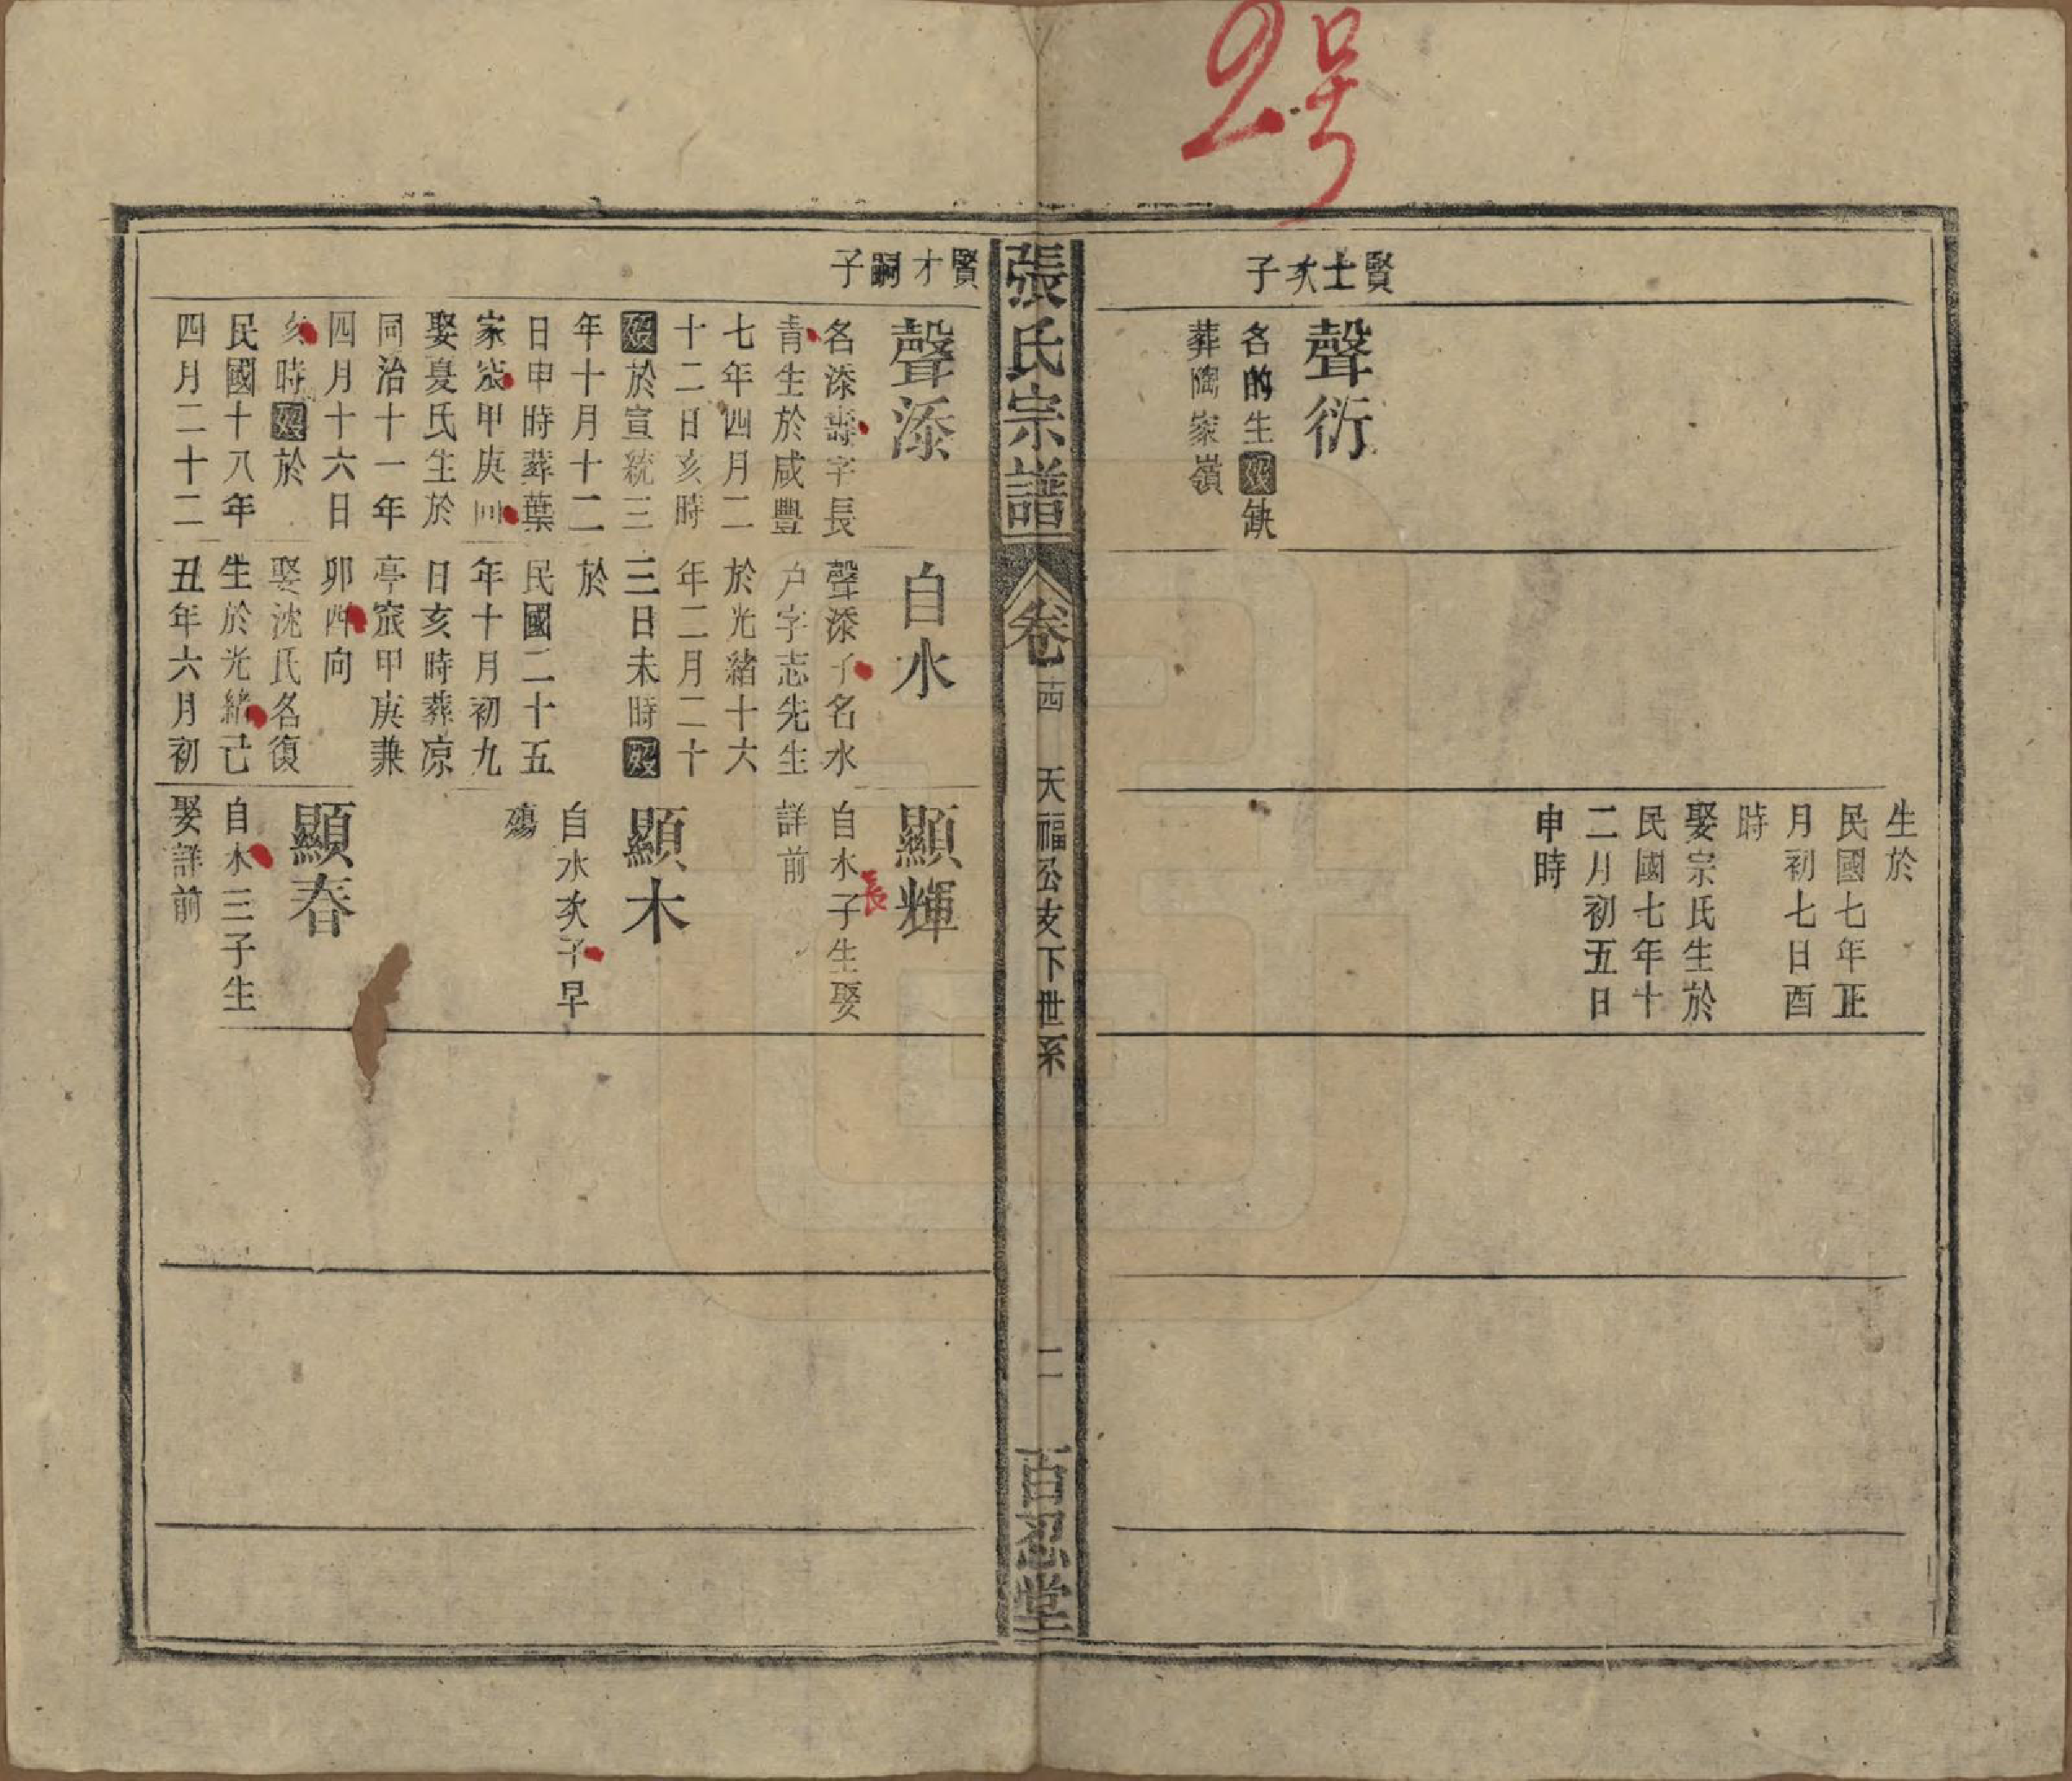 2号
賢士次子
聲衍
名的生歿缺
葬陶家嶺
生於
民國七年正
月初七日酉
時
娶宗氏生於
民國七年十
二月初五日
申時
張氏宗譜
卷
天福公支下世系
二
百忍堂
賢才嗣子
聲漆
名漆壽字長
青生於咸豐
七年四月二
十二日亥時
歿於宣統三
年十月十二
日申時葬葉
家㝮甲庚向
娶夏氏生於
同治十一年
四月十六日
亥時歿於
民國十八年
四月二十二
自水
聲漆子名水
戶字志先生
於光緒十六
年二月二十
三日未時歿
於
民國二十五
年十月初九
日亥時葬凉
亭㝮甲庚兼
卯酉向
娶沈氏名復
生於光緒己
丑年六月初
顯輝
自水長子生娶
詳前
顯木
自水次子早
殤
顯春
自水三子生
娶詳前